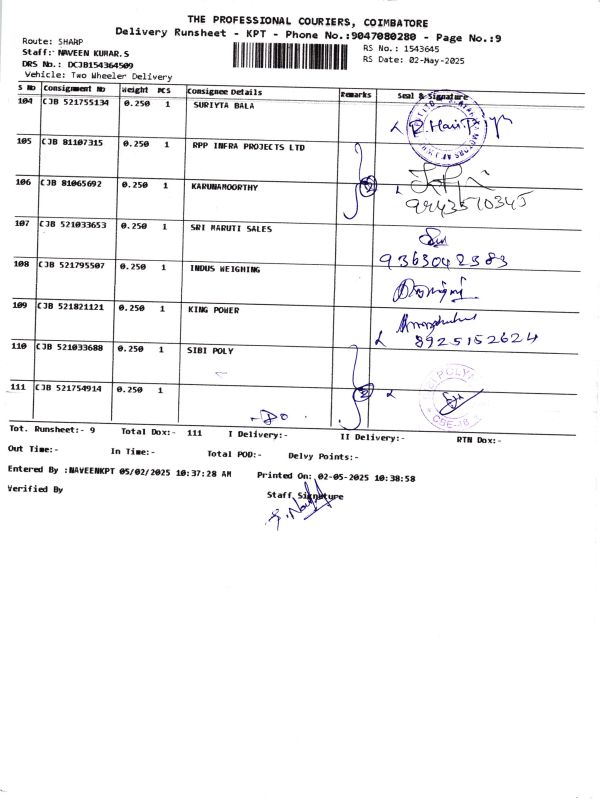 THE PROFESSIONAL COURIERS, COIMBATORE
Delivery Runsheet - KPT - Phone No.:9047080280 - Page No.:9
Route: SHARP
RS No.: 1543645
Staff: NAVEEN KUMAR.S
RS Date: 02-May-2025
DRS No.: DCJB154364509
Vehicle: Two Wheeler Delivery
S No Consignment No Weight PCS Consignee Details Remarks Seal & Signature
104 CJB 521755134 0.250 1 SURIYTA BALA
R. Hari.P
105 CJB 81107315 0.250 1 RPP INFRA PROJECTS LTD
106 CJB 81065692 0.250 1 KARUNAMOORTHY
2
9443570345
107 CJB 521033653 0.250 1 SRI MARUTI SALES
9363042383
108 CJB 521795507 0.250 1 INDUS WEIGHING
109 CJB 521821121 0.250 1 KING POWER
8925152624
110 CJB 521033688 0.250 1 SIBI POLY
111 CJB 521754914 0.250 1
2
-DO
Tot. Runsheet:- 9 Total Dox:- 111 I Delivery:- II Delivery:- RTN Dox:-
Out Time:- In Time:- Total POD:- Delvy Points:-
Entered By :NAVEENKPT 05/02/2025 10:37:28 AM Printed On: 02-05-2025 10:38:58
Verified By Staff Signature